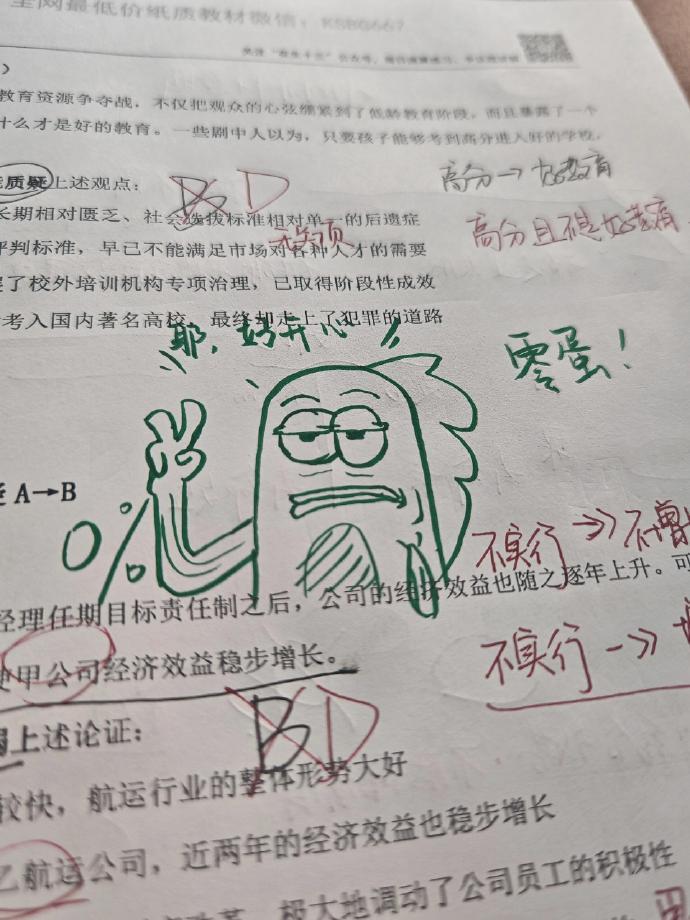 全网最低价纸质教材微信：KSBG667
教育资源争夺战，不仅把观众的心弦绷紧到了低龄教育阶段，而且暴露了一个
什么才是好的教育。一些剧中人以为，只要孩子能够考到高分进入好的学校，
质疑上述观点：
B D
高分→好教育
长期相对匮乏、社会选拔标准相对单一的后遗症
无关项
高分且不是好教育
评判标准，早已不能满足市场对各种人才的需要
了校外培训机构专项治理，已取得阶段性成效
考入国内著名高校，最终却走上了犯罪的道路
耶，好开心
零蛋！
A→B
不实行→不增
经理任期目标责任制之后，公司的经济效益也随之逐年上升。可
使甲公司经济效益稳步增长。
不实行→增
上述论证：
B D
较快，航运行业的整体形势大好
乙航运公司，近两年的经济效益也稳步增长
极大地调动了公司员工的积极性